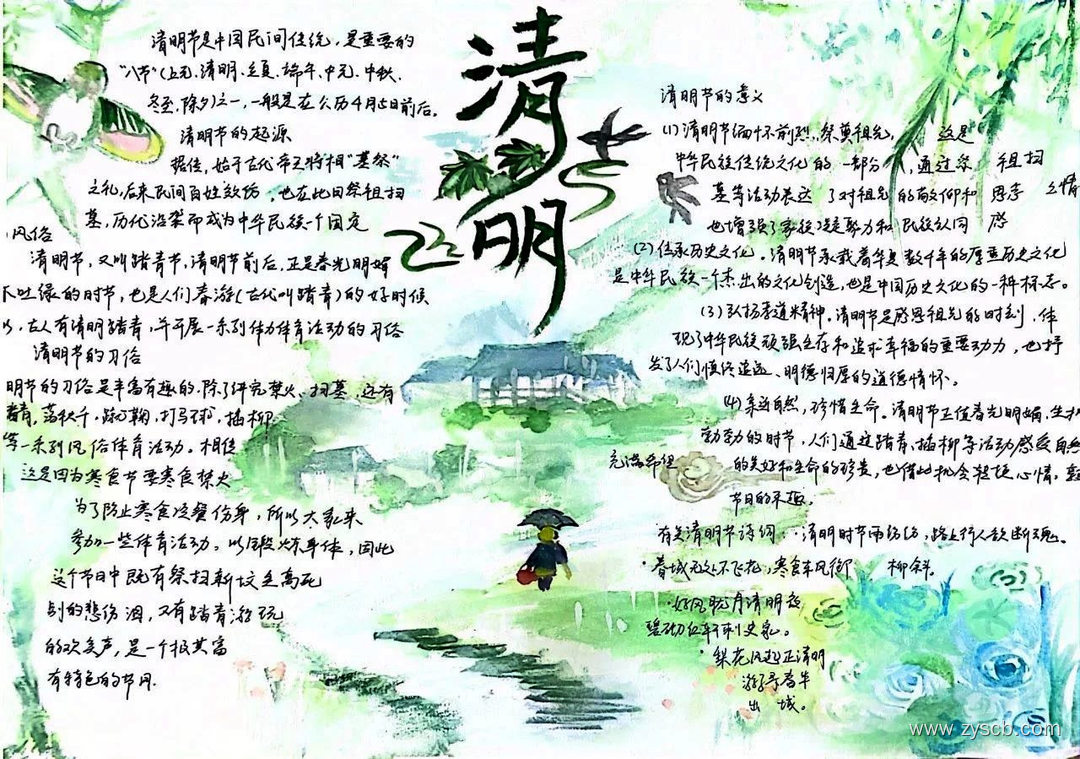 清明
清明节是中国民间传统,是重要的
"八节"(上元、清明、立夏、端午、中元、中秋、
冬至、除夕)之一,一般是在公历4月5日前后。
清明节的起源
据传,始于古代帝王将相"墓祭"
之礼,后来民间百姓效仿,也在此日祭祖扫
墓,历代沿袭而成为中华民族一个固定
风俗
清明节,又叫踏青节,清明节前后,正是春光明媚
木吐绿的时节,也是人们春游(古代叫踏青)的好时候
以,古人有清明踏青,并开展一系列体力体育活动的习俗
清明节的习俗
明节的习俗是丰富有趣的,除了讲究禁火、扫墓,还有
踏青,荡秋千,蹴鞠,打马球,插柳
等一系列风俗体育活动。相传
这是因为寒食节要寒食禁火
为了防止寒食冷餐伤身,所以大家来
参加一些体育活动。以锻炼身体,因此
这个节日中既有祭扫新坟生离死
别的悲伤泪,又有踏青游玩
的欢笑声,是一个极其富
有特色的节日.
清明节的意义
(1)清明节缅怀前烈,祭奠祖先, 这是
中华民族传统文化的一部分,通过祭祖扫
墓等活动表达了对祖先的敬仰和思恋之情
也增强了家族凝聚力和民族认同感
(2)传承历史文化。清明节承载着华夏数千年的厚重历史文化
是中华民族一个杰出的文化创造,也是中国历史文化的一种标志。
(3)弘扬孝道精神,清明节是感恩祖先的时刻,体
现了中华民族顽强生存和追求幸福的重要动力,也抒
发了人们慎终追远、明德归厚的道德情怀。
(4)亲近自然,珍惜生命。清明节正值春光明媚,生机
勃勃的时节,人们通过踏青,插柳等活动感受自然
充满希望的美好和生命的珍贵,也借此机会轻松心情,
节日的乐趣。
有关清明节诗词:·清明时节雨纷纷,路上行人欲断魂。
·春城无处不飞花,寒食东风御柳斜。
·好风胧月清明夜
碧砌红轩刺史家。
·梨花风起正清明
游子寻春半
出城。
www.zyscb.com